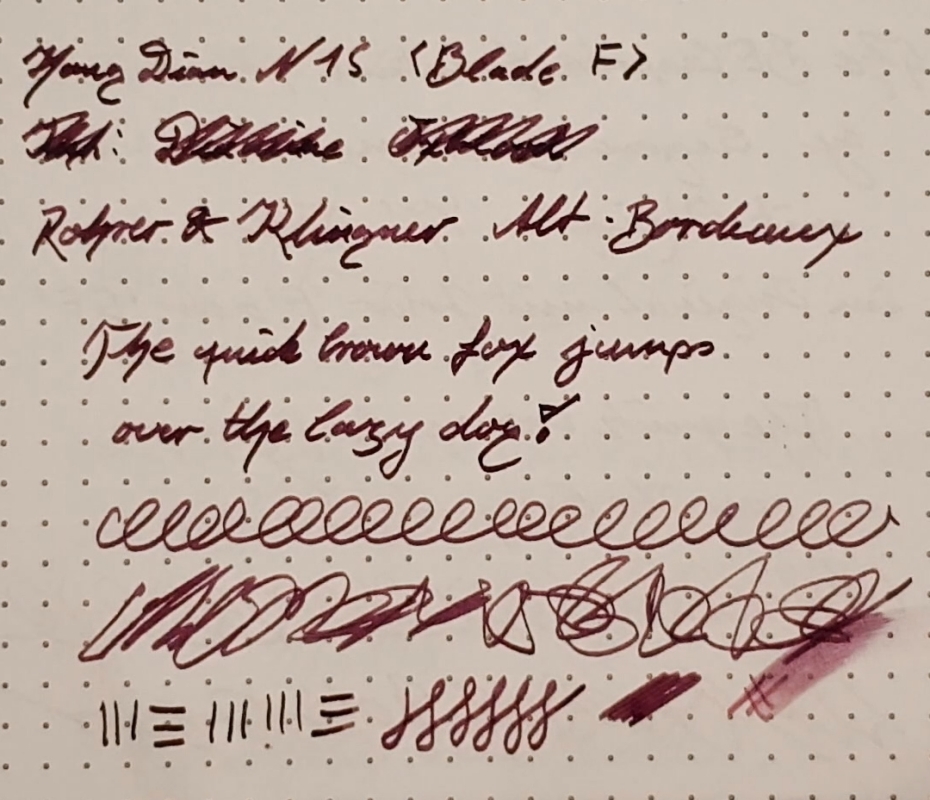 Hong Dian N1S (Blade F)
Rohrer & Klingner Alt-Bordeaux
The quick brown fox jumps
over the lazy dog!